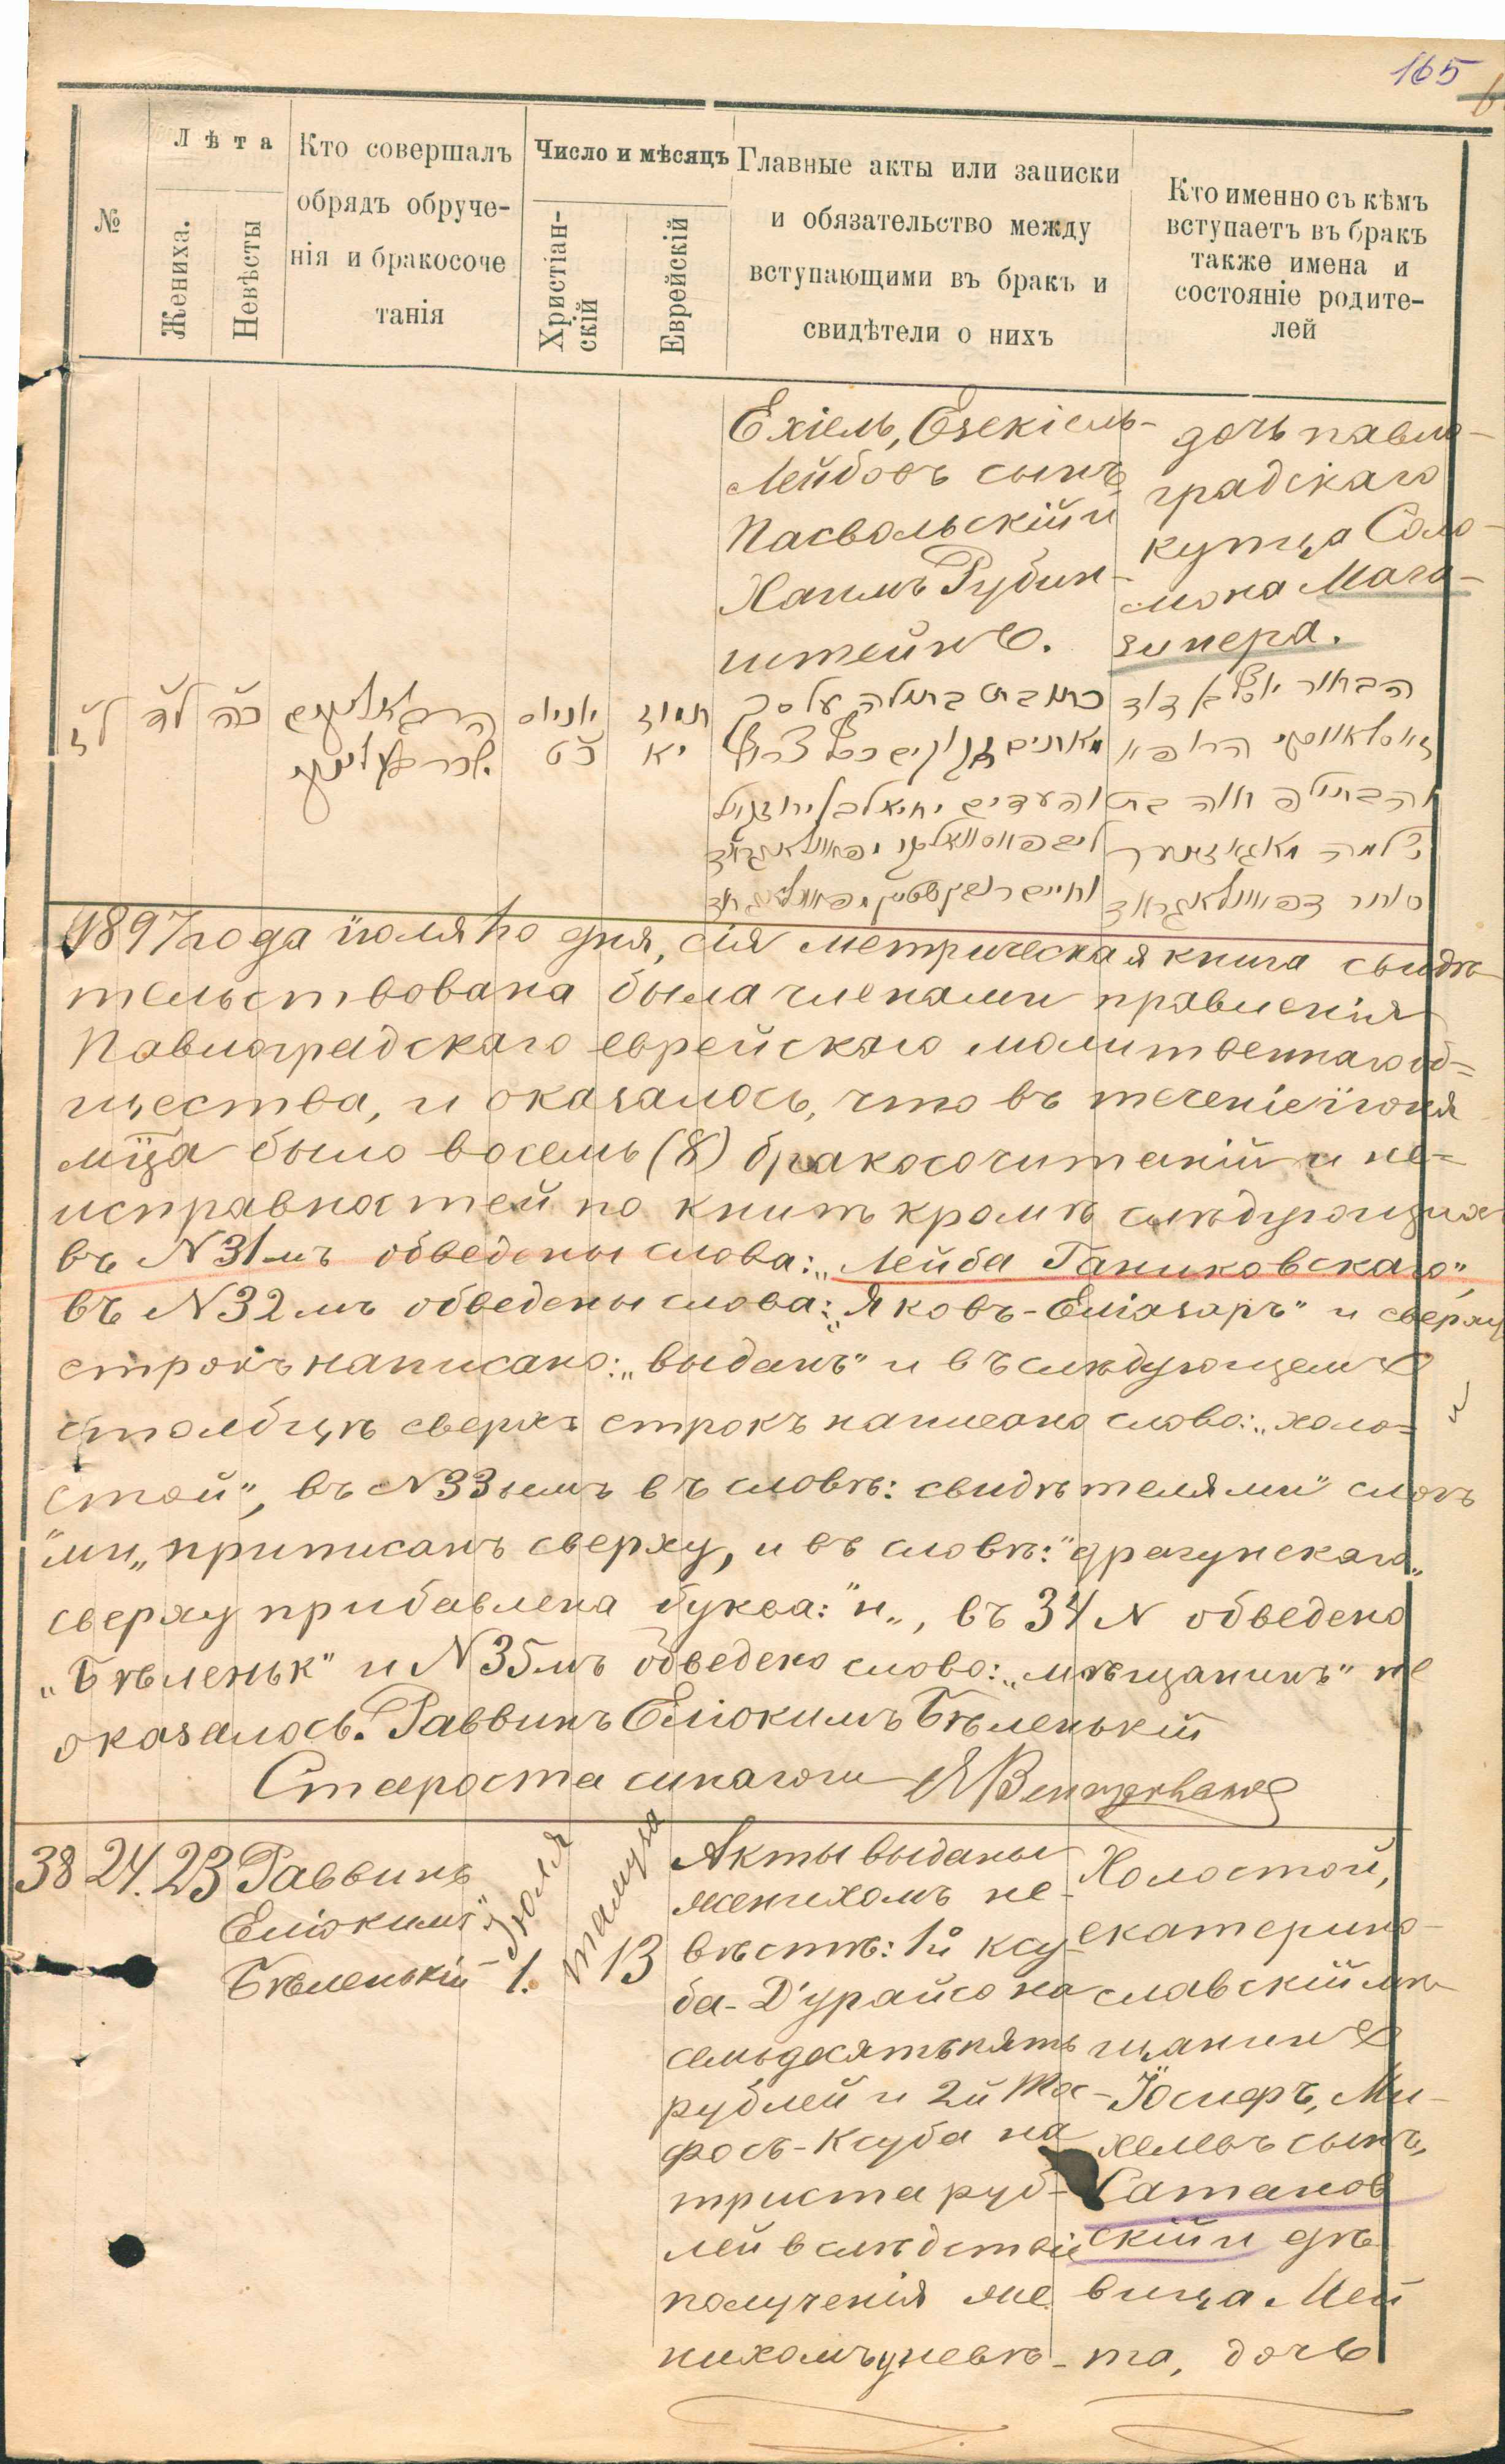 165
№
Лѣта
Жениха.
Невѣсты
Кто совершалъ
обрядъ обруче-
нія и бракосоче
танія
Число и мѣсяцъ
Христіан-
скій
Еврейскій
Главные акты или записки
и обязательство между
вступающими въ бракъ и
свидѣтели о нихъ
Кто именно съ кѣмъ
вступаетъ въ бракъ
также имена и
состояніе родите-
лей
Ехіель, Езекіель-
Лейбовъ сынъ
Пасвольскій и
Хаимъ Рубин-
штейнъ.
дочь павло-
градскаго
купца Соло-
мона Мага-
зинера.
לז
לה
כה
יוניוס
כט
תמוז
יא
כתובת בתולה על סך
והעדים יחיאל
הבחור
והבתולה חוה בת
שלמה מאגאזינער
סוחר דפאוולאגראד
1897 года іюля 1го дня, сія метрическая книга свидѣ
тельствована была членами правленія
Павлоградскаго еврейскаго молитвеннаго об=
щества, и оказалось, что въ теченіе іюня
мца было восемь (8) бракосочитаній и не=
исправностей по книгѣ кромѣ слѣдующихъ
въ N31мъ обведены слова: „Лейба Ганиковскаго"
въ N32мъ обведены слова: „Яковъ-Еліазаръ" и сверху
строкъ написано: „выданъ" и въ слѣдующемъ
столбцѣ сверхъ строкъ написано слово: „холо=
стой", въ N33ьемъ въ словѣ: свидѣтелями" слогъ
"ми„ приписанъ сверху, и въ словѣ: "драгунскаго„
сверху прибавлена буква: "н„, въ 34 N обведено
„Бѣленьк" и N35мъ обведено слово: „мѣщанинъ" не
оказалось. Раввинъ Еліокимъ Бѣленькій
Староста синагоги
38
24.
23
Раввинъ
Еліокимъ
Бѣленькій
Іюля
1.
тамуза
13
Акты выданы
женихомъ не-
вѣстѣ: 1й ксу-
ба-Д'урайсо на
семьдесятъ пять
рублей и 2й То-
фосъ-Ксуба на
триста руб-
лей вслѣдствіе
полученія же
нихомъ у невѣ-
Холостой,
екатерино-
славскій мѣ-
щанинъ
Іосифъ, Ми-
хелевъ сынъ,
Сатанов
скій и дѣ
вица Ней
та, дочь